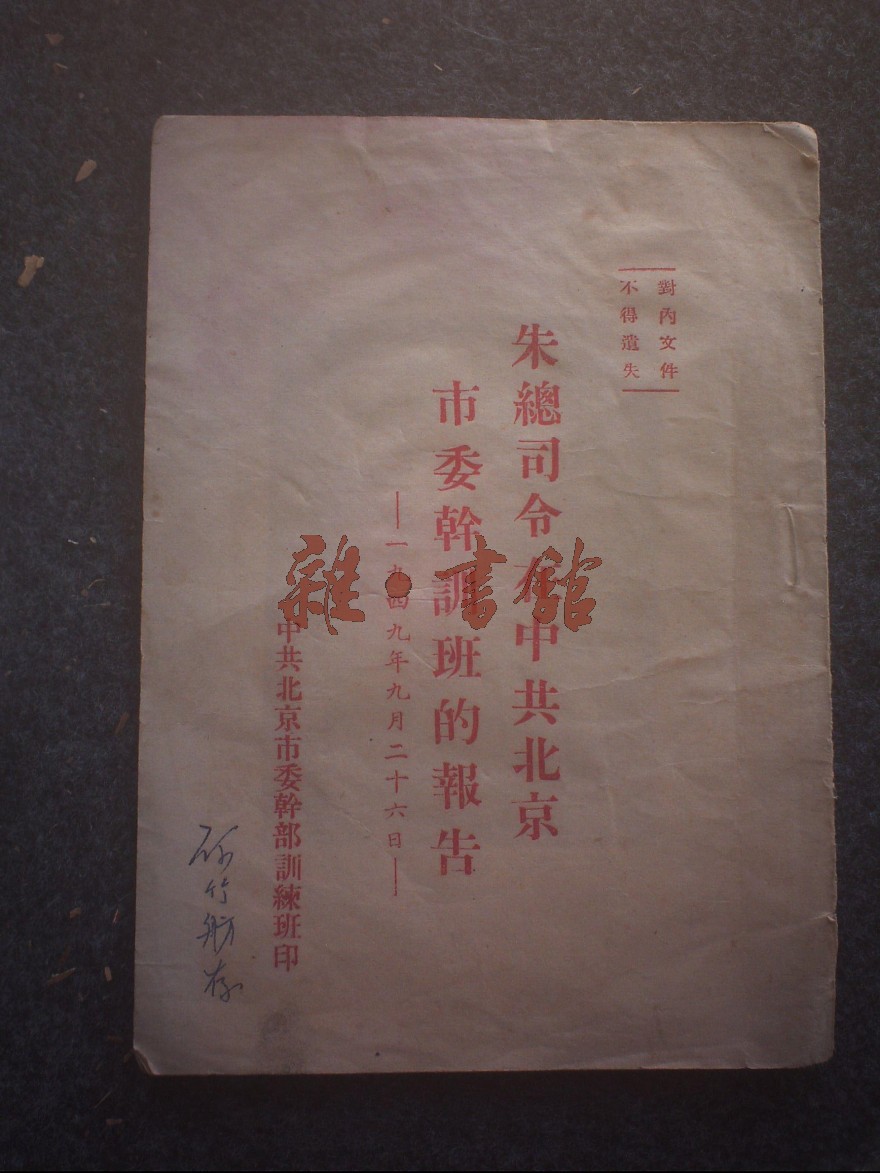 對內文件
不得遺失
朱總司令在中共北京
市委幹訓班的報告
—一九四九年九月二十六日—
中共北京市委幹部訓練班印
竹 存
雜·書館